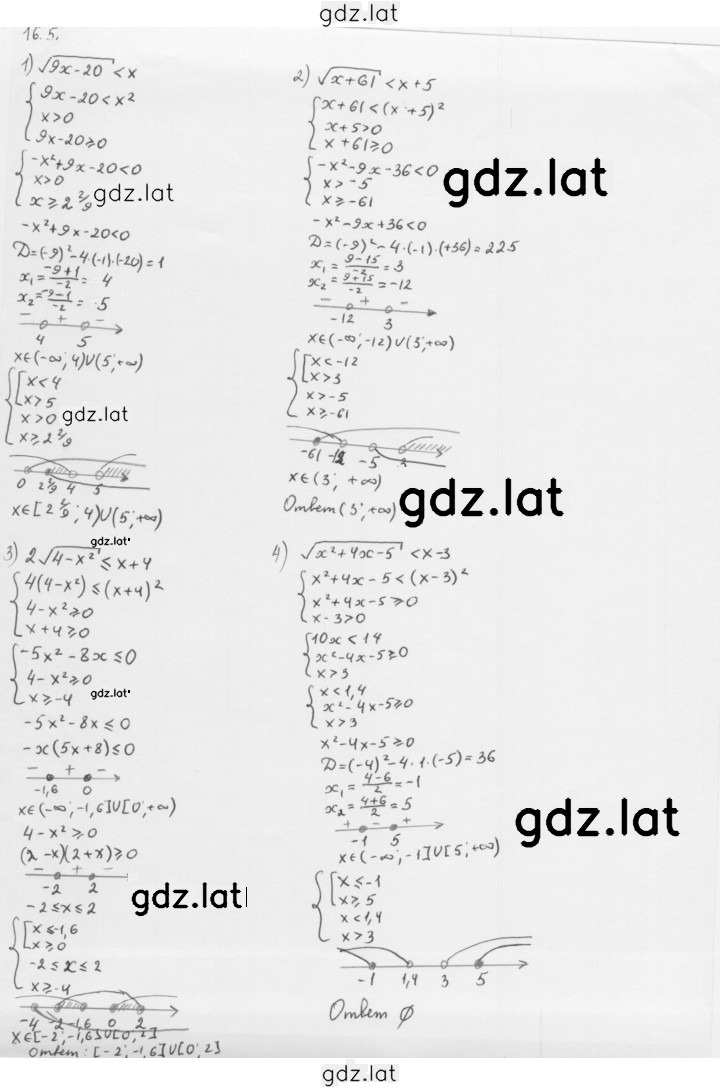 gdz.lat
16.5.
1) √9x-20 < x
{ 9x-20 < x²
x>0
9x-20≥0
{ -x²+9x-20<0
x>0
x≥2 2/9
gdz.lat
-x²+9x-20<0
D=(-9)²-4·(-1)·(-20)=1
x₁=(-9+1)/-2= 4
x₂=(-9-1)/-2= 5
- + -
4 5
x∈(-∞; 4)∪(5; +∞)
{ [ x<4
x>5
x>0
gdz.lat
x≥2 2/9
0 2 2/9 4 5
x∈[2 2/9; 4)∪(5; +∞)
2) √x+61 < x+5
{ x+61<(x+5)²
x+5>0
x+61≥0
{ -x²-9x-36<0
x>-5
x≥-61
gdz.lat
-x²-9x+36<0
D=(-9)²-4·(-1)·(+36)=225
x₁=(9-15)/-2=3
x₂=(9+15)/-2=-12
- + -
-12 3
x∈(-∞; -12)∪(3; +∞)
{ [ x<-12
x>3
x>-5
x≥-61
-61 -12 -5 3
x∈(3; +∞)
Ответ (3; +∞)
gdz.lat
gdz.lat
3) 2√4-x² ≤ x+4
{ 4(4-x²)≤(x+4)²
4-x²≥0
x+4≥0
{ -5x²-8x≤0
4-x²≥0
x≥-4
gdz.lat
-5x²-8x≤0
-x(5x+8)≤0
- + -
-1,6 0
x∈(-∞; -1,6]∪[0; +∞)
4-x²≥0
(2-x)(2+x)≥0
- + -
-2 2
gdz.lat
-2≤x≤2
{ [ x≤-1,6
x≥0
-2≤x≤2
x≥-4
-4 -2 -1,6 0 2
x∈[-2; -1,6]∪[0; 2]
Ответ: [-2; -1,6]∪[0; 2]
4) √x²+4x-5 < x-3
{ x²+4x-5<(x-3)²
x²+4x-5≥0
x-3>0
{ 10x<14
x²-4x-5≥0
x>3
{ x<1,4
x²-4x-5≥0
x>3
x²-4x-5≥0
D=(-4)²-4·1·(-5)=36
x₁=(4-6)/2=-1
x₂=(4+6)/2=5
+ - +
-1 5
gdz.lat
x∈(-∞; -1]∪[5; +∞)
{ [ x≤-1
x≥5
x<1,4
x>3
-1 1,4 3 5
Ответ ∅
gdz.lat